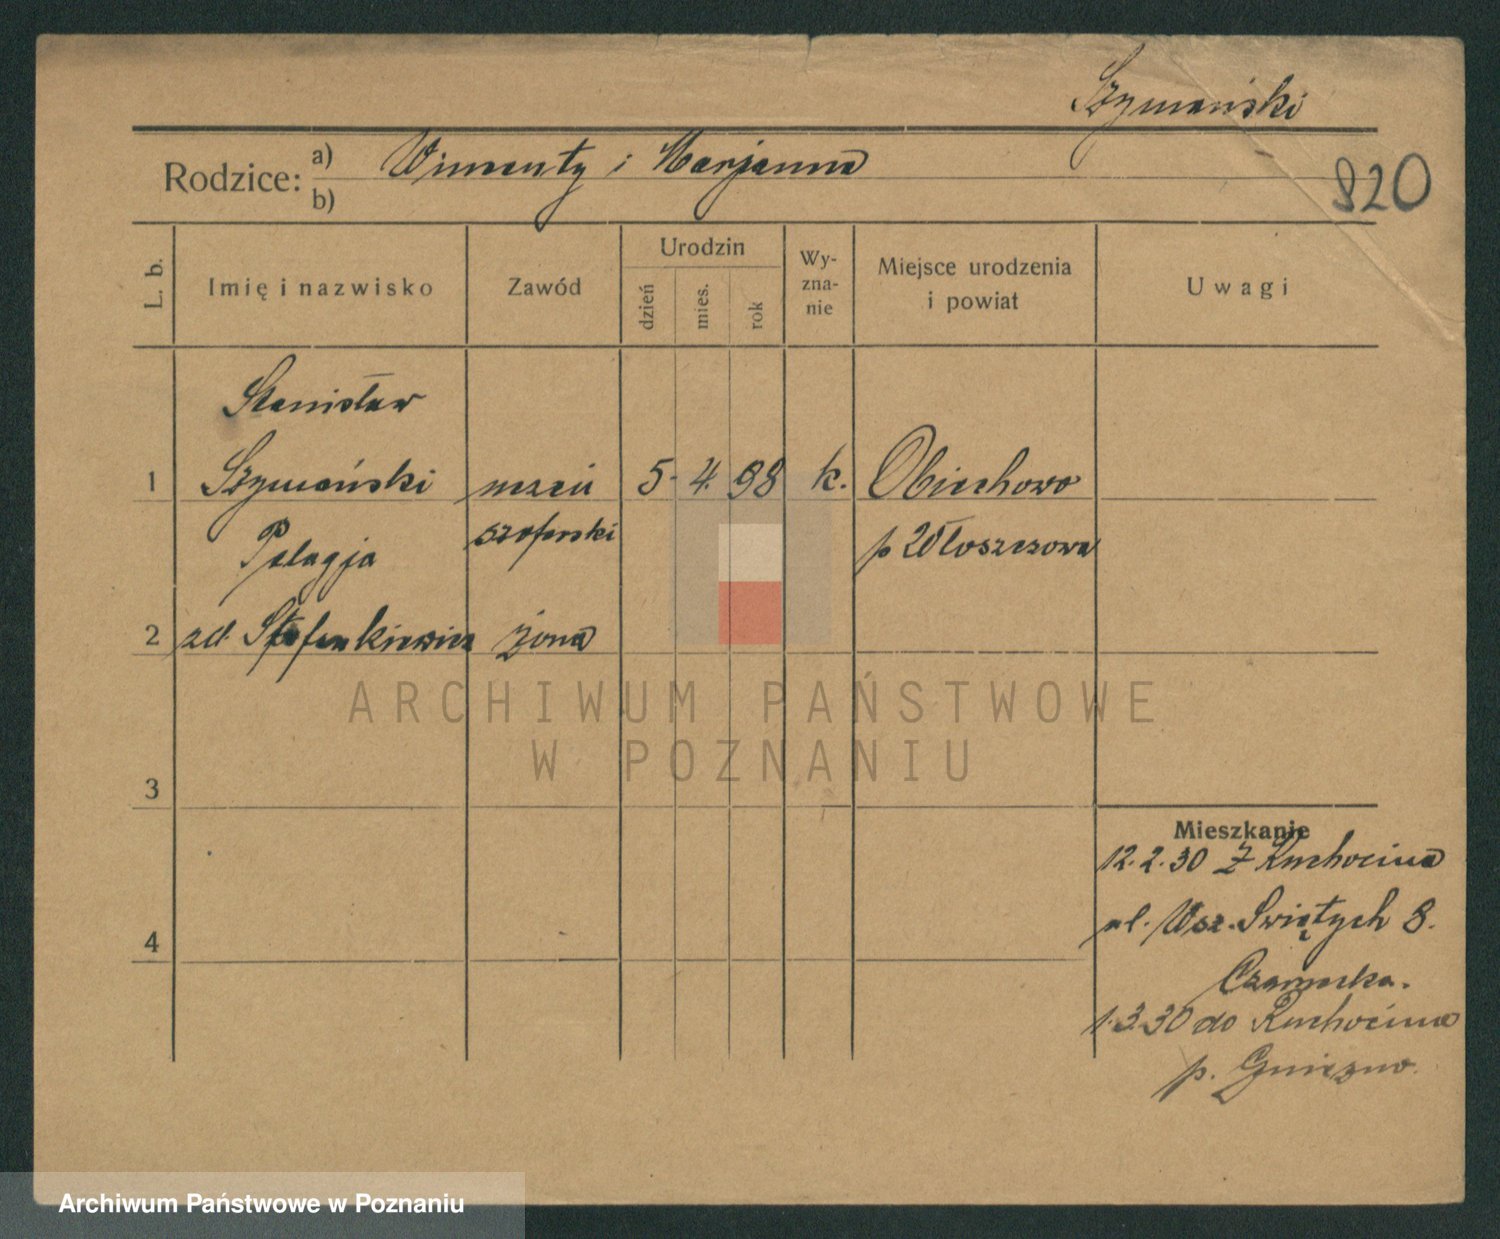 Szymański
Rodzice: a) Wincenty i Marjanna
b)
820
L. b.
Imię i nazwisko
Zawód
Urodzin
dzień
mies.
rok
Wy-
zna-
nie
Miejsce urodzenia
i powiat
Uwagi
Stanisław
1 Szymański uczeń 5. 4. 98 k. Obiechowo
szoferski p Włoszczowa
Pelagja
2 zd. Stefankiewicz żona
ARCHIWUM PAŃSTWOWE
W POZNANIU
3
4
Mieszkanie
12.2.30 z Ruchocina
ul. Wsz. Świętych 8.
1.3.30 do Ruchocina
p. Gniezno.
Archiwum Państwowe w Poznaniu